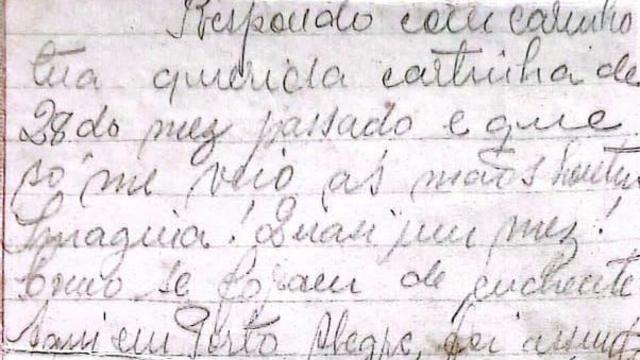 Respondo com carinho
tua querida cartinha de
28 do mez passado e que
só me veio as mãos hontem
Imagina! Quasi um mez!
Como se foram de enchente
Aqui em Porto Alegre, foi assim